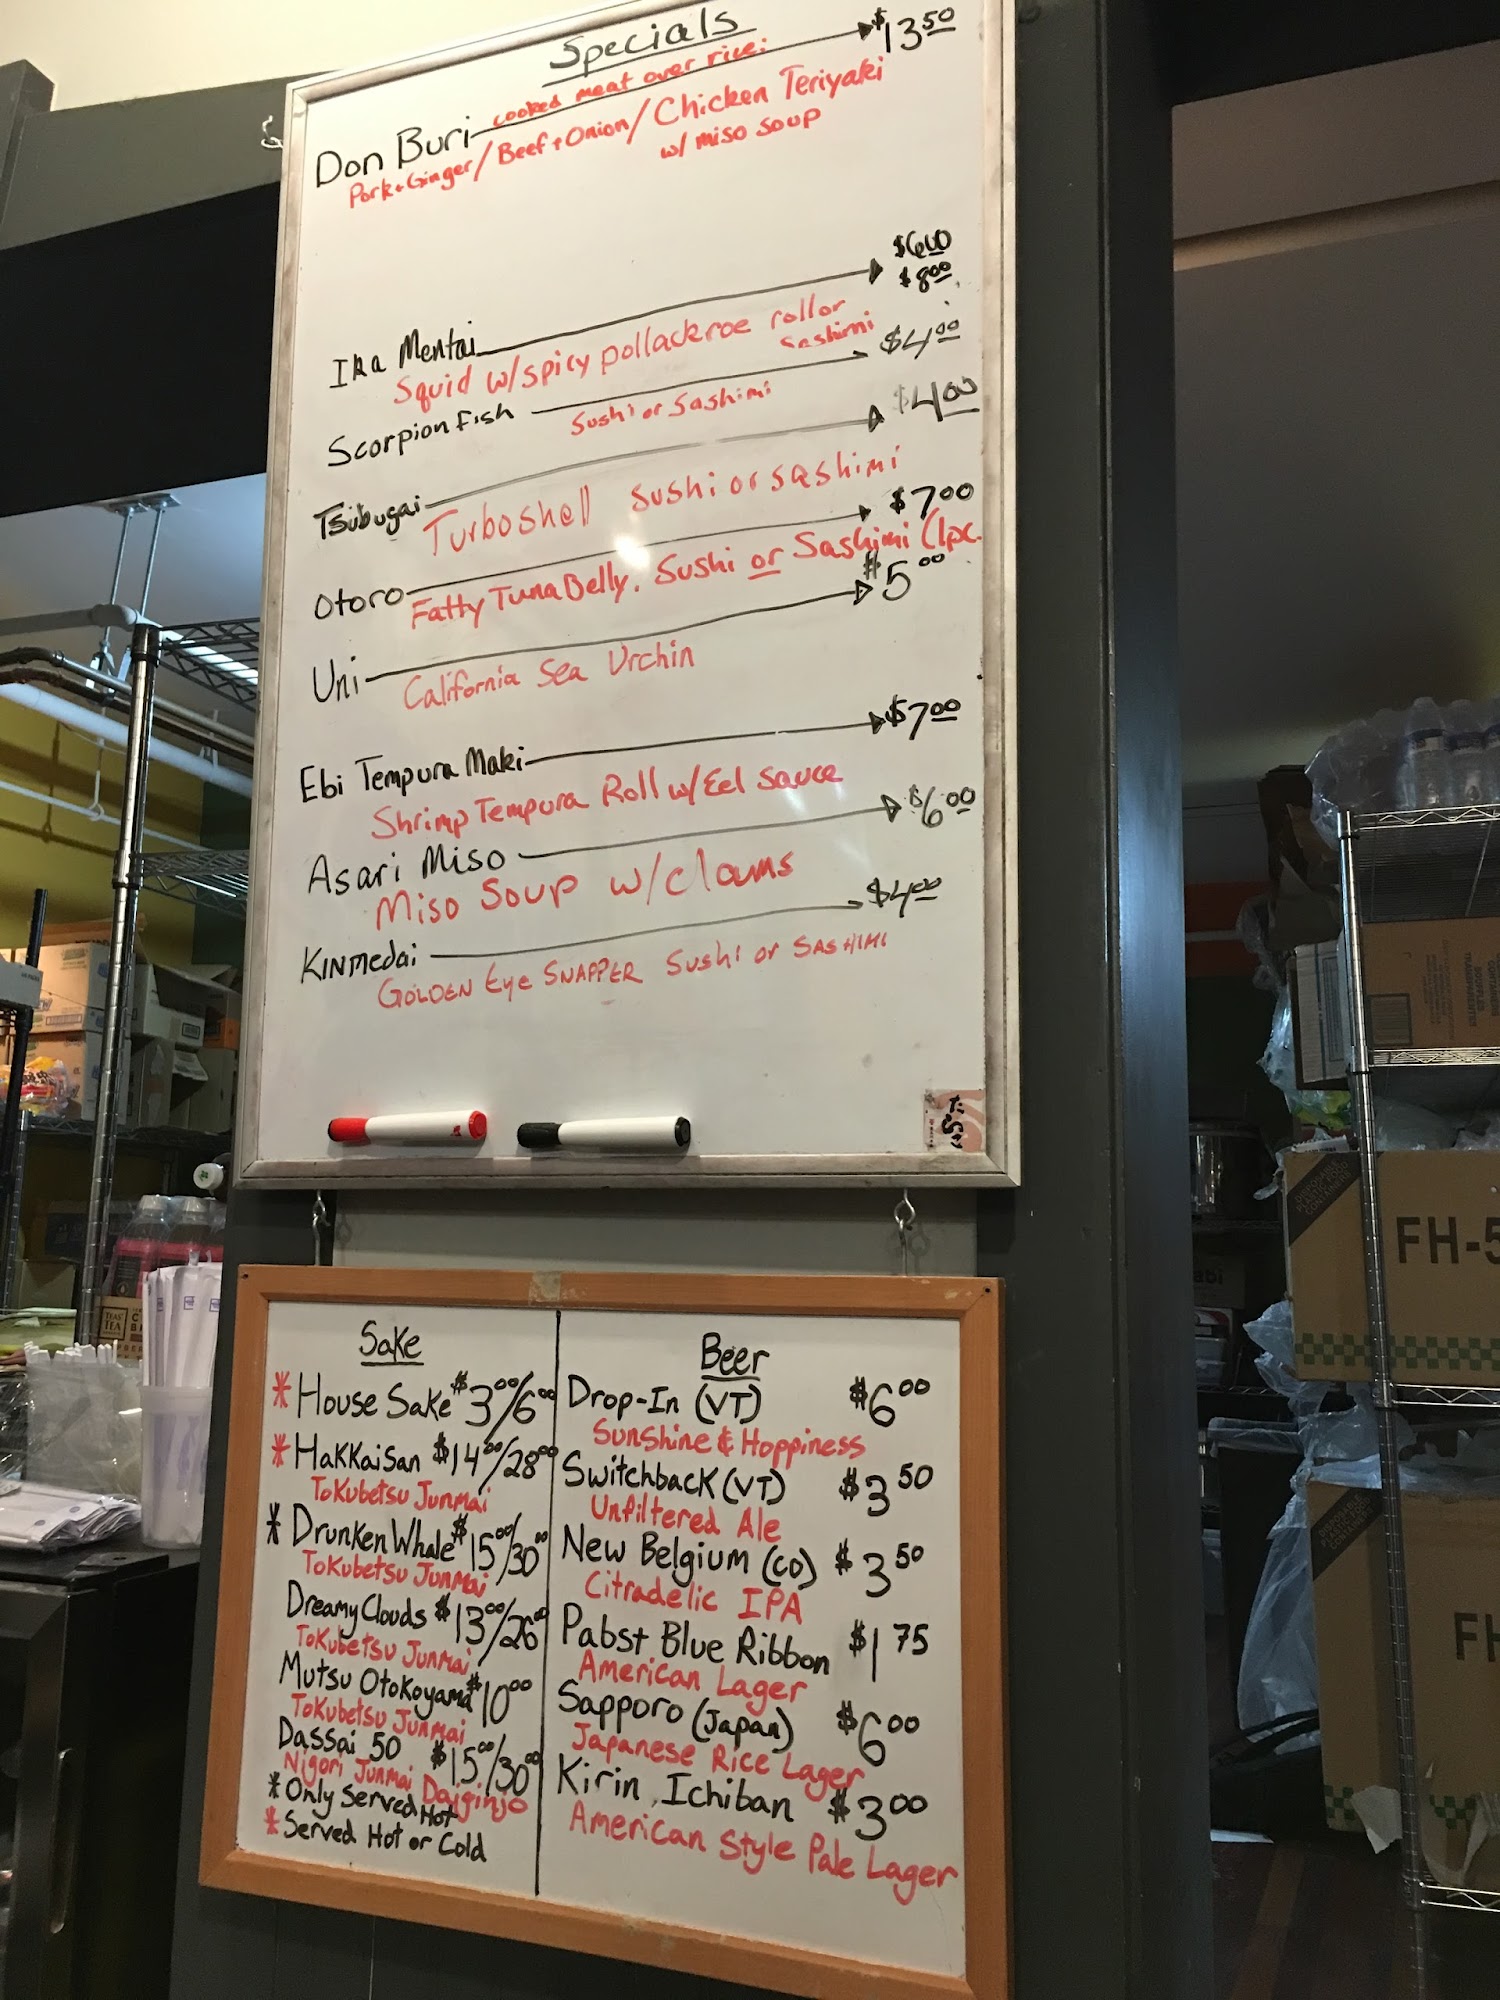 Specials
Don Buri $13.50
cooked meat over rice:
Pork + Ginger / Beef + Onion / Chicken Teriyaki
w/ miso soup
Ika Mentai $6.00
$8.00
Squid w/spicy pollack roe roll or
Sashimi
Scorpion Fish $4.00
Sushi or Sashimi
Tsubugai $4.00
Turboshell Sushi or sashimi
Otoro $7.00
Fatty Tuna Belly. Sushi or Sashimi (1pc.
Uni $5.00
California Sea Urchin
Ebi Tempura Maki $7.00
Shrimp Tempura Roll w/ Eel Sauce
Asari Miso $6.00
Miso Soup w/clams
Kinmedai $4.00
GOLDEN Eye SNAPPER Sushi or SASHIMI
Sake
* House Sake $3.00/6.00
* Hakkaisan $14.00/28.00
Tokubetsu Junmai
* Drunken Whale $15.00/30.00
Tokubetsu Junmai
Dreamy Clouds $13.00/26.00
Tokubetsu Junmai
Mutsu Otokoyama $10.00
Tokubetsu Junmai
Dassai 50 $15.00/30.00
Nigori Junmai Daiginjo
* Only Served Hot
* Served Hot or Cold
Beer
Drop-In (VT) $6.00
Sunshine & Hoppiness
Switchback (VT) $3.50
Unfiltered Ale
New Belgium (CO) $3.50
Citradelic IPA
Pabst Blue Ribbon $1.75
American Lager
Sapporo (Japan) $6.00
Japanese Rice Lager
Kirin Ichiban $3.00
American Style Pale Lager
FH-5
FH
TEAS' TEA